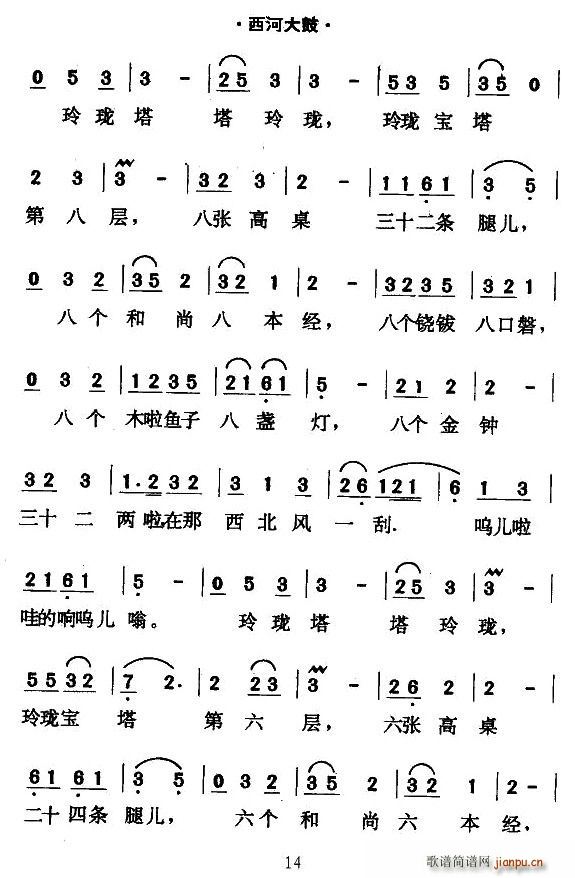 ·西河大鼓·
0 5 3 | 3 - | 25 3 | 3 - | 53 5 | 35 0 |
玲珑塔 塔玲珑， 玲珑宝塔
2 3 | 3 - | 32 3 | 2 - | 11 61 | 3 5 |
第八层， 八张高桌 三十二条腿儿，
0 3 2 | 35 2 | 32 1 | 2 - | 3235 | 321 |
八个和尚八本经， 八个铙钹八口磬，
0 3 2 | 1235 | 21 61 | 5 - | 21 2 | 2 - |
八个木啦鱼子八盏灯， 八个金钟
32 3 | 1·2 32 | 3 1 3 | 26 121 | 6 1 3 |
三十二两啦在那西北风一刮. 呜儿啦
21 61 | 5 - | 0 5 3 | 3 - | 25 3 | 3 - |
哇的响呜儿嗡。 玲珑塔 塔玲珑，
55 32 | 7 2. | 2 23 | 3 - | 26 2 | 2 - |
玲珑宝塔 第六层， 六张高桌
61 61 | 3 5 | 0 3 2 | 35 2 | 32 1 | 2 - |
二十四条腿儿， 六个和尚六本经，
14
歌谱简谱网
jianpu.cn